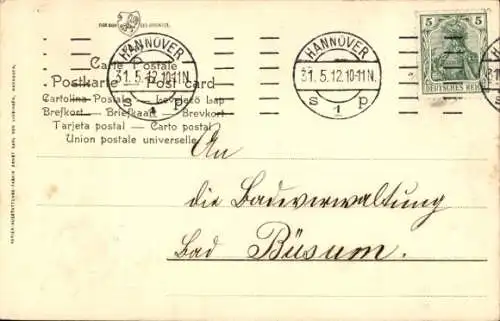 HANNOVER
31.5.12.10-11N.
S 1 p
HANNOVER
31.5.12.10-11N.
S 1 p
5 5
DEUTSCHES REICH
Carte Postale
Postkarte – Post card
Cartolina Postale – Levelező Lap
Brefkort – Briefkaart – Brevkort
Tarjeta postal – Carto postal
Union postale universelle
An
die Badeverwaltung
Bad Büsum.